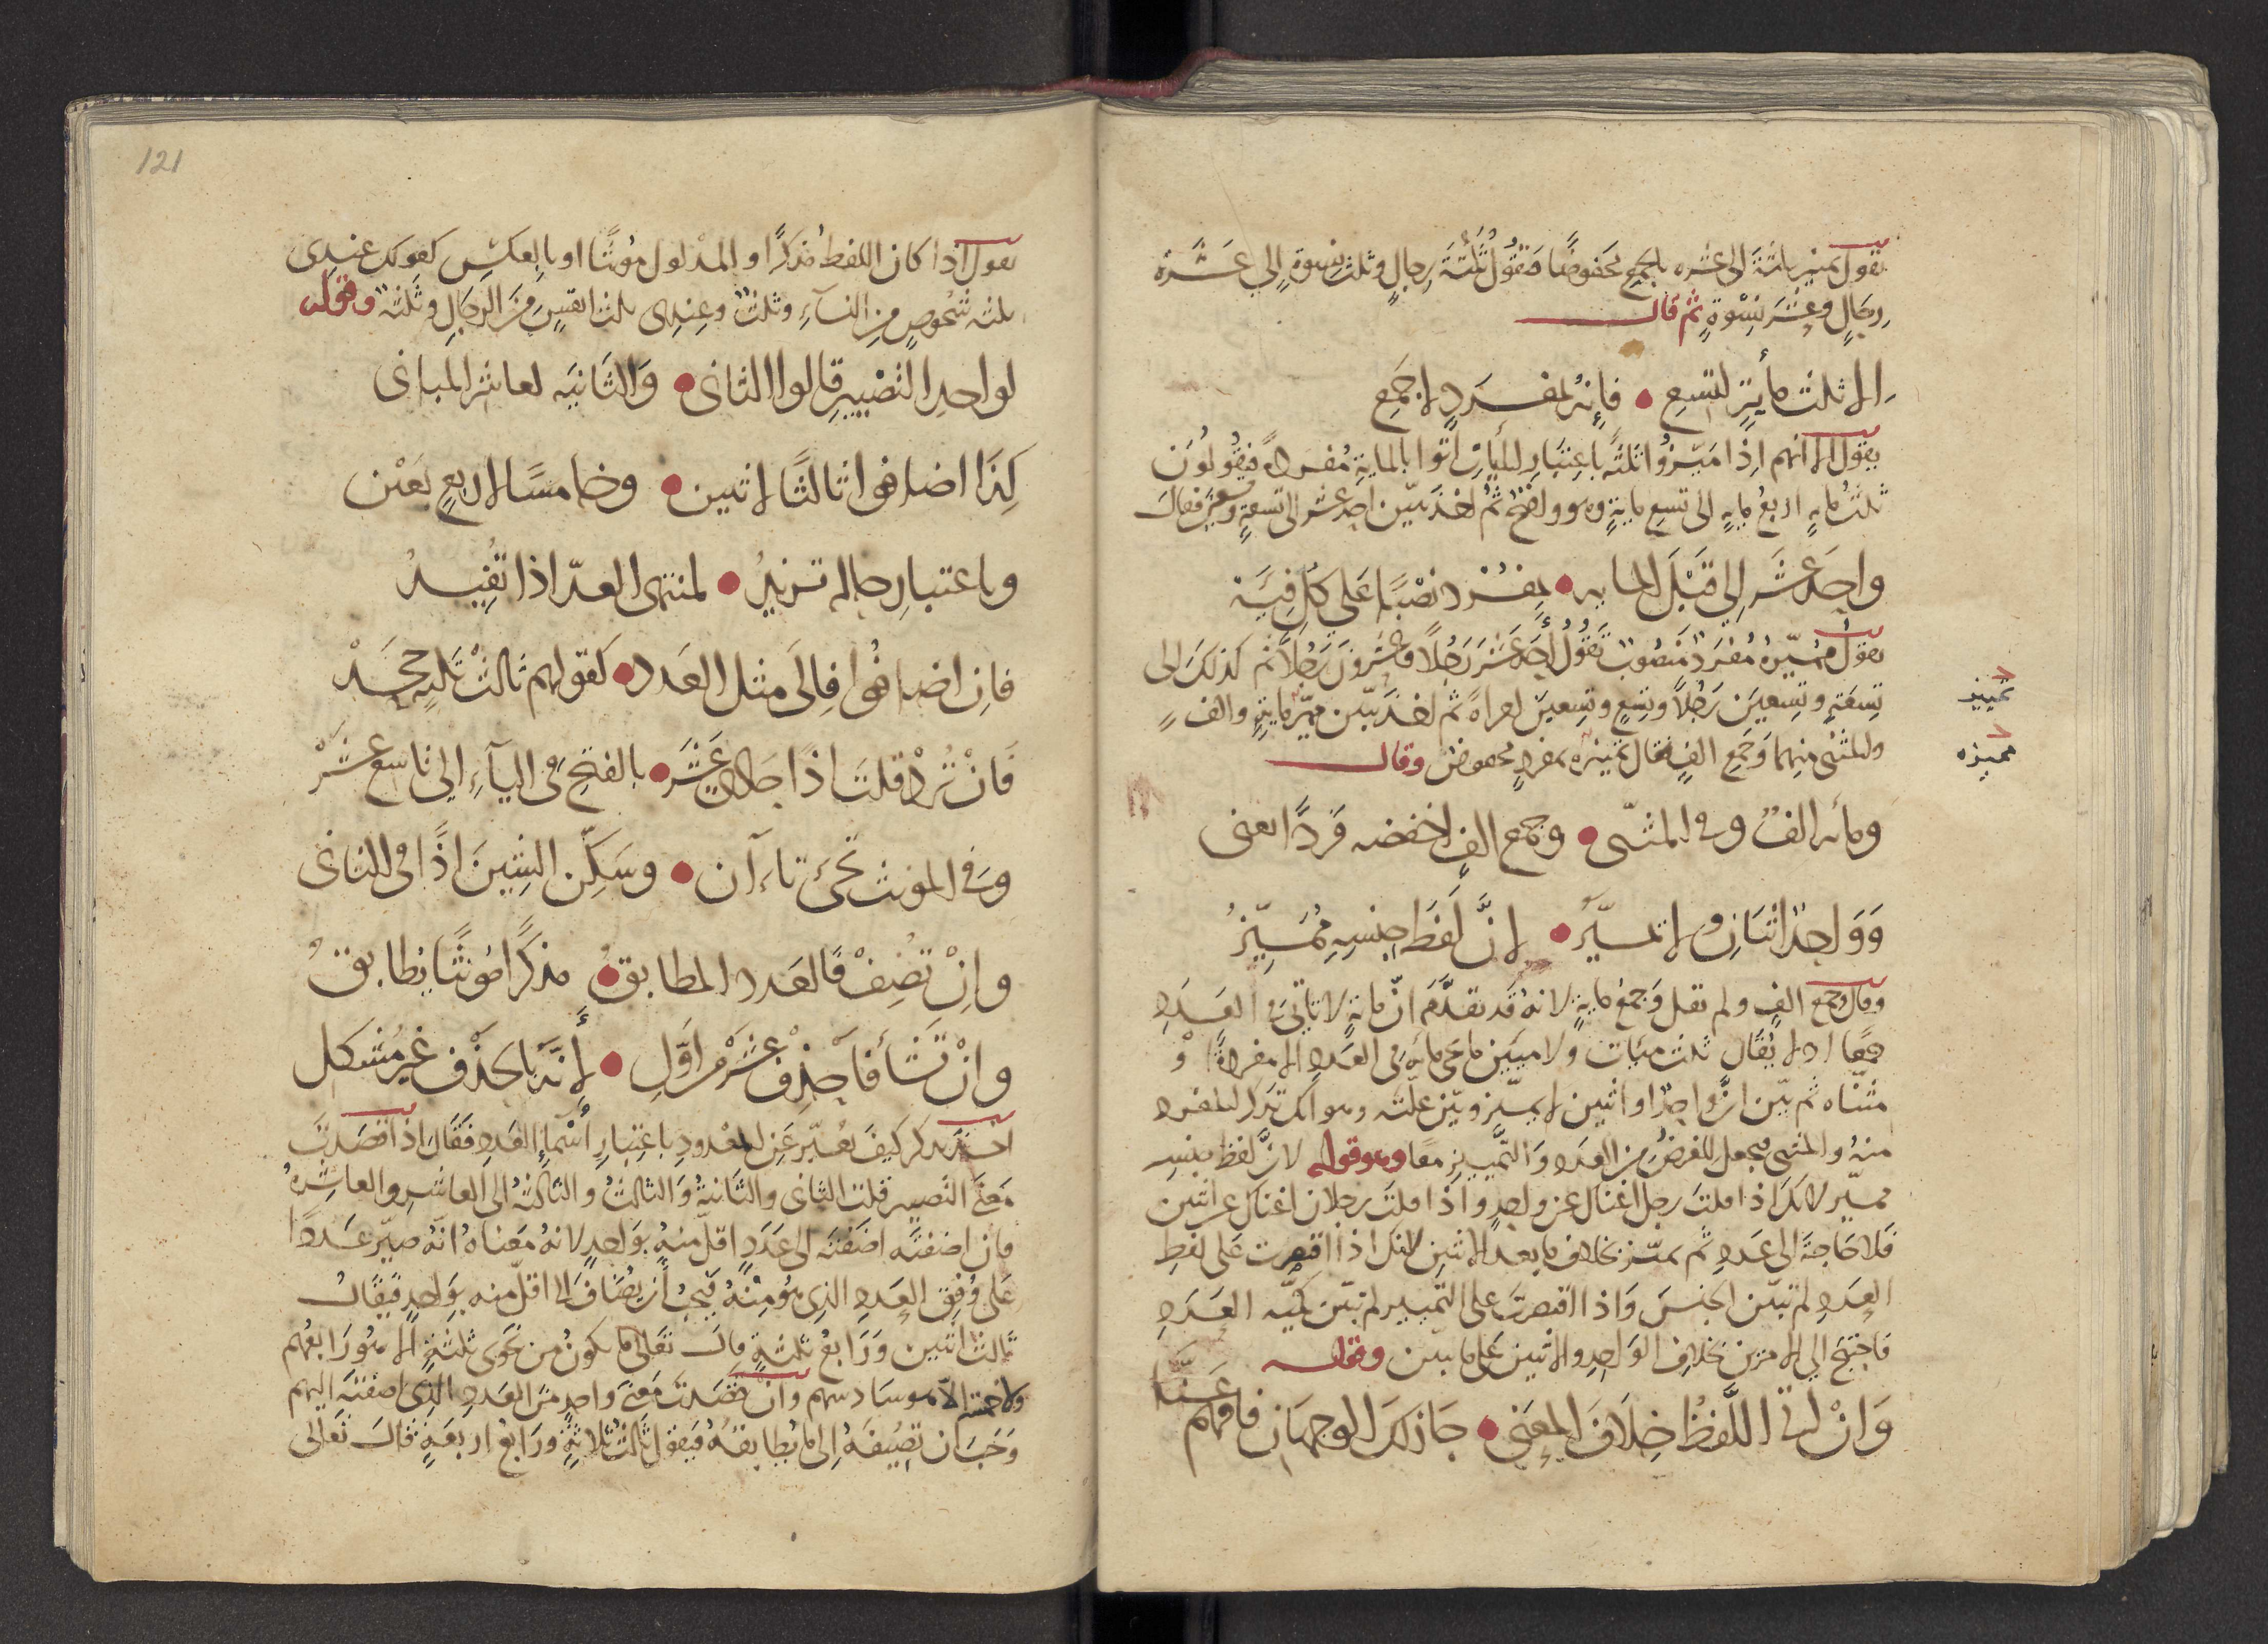 يقول تمييز ثلثة الى عشره بالجمع مخفوضا فتقول ثلثة رجال وثلث نسوة الى عشرة
رجال وعشر نسوة ثم قال
الا ثلث مأية لتسع فانه لمفرد لا جمع
يقول الا انهم اذا ميزوا ثلثه باعتبار المايات اتوا بالماية مفردة فيقولون
ثلث مايه اربع مايه الى تسع ماية وهو واضح ثم اخذ يبين احد عشر الى تسعة وتسعين فقال
واحد عشر الى قبل المايه بمفرد نصبا على كل فيه
يقول مميزه مفرد منصوب تقول احد عشر رجلا وعشرون رجلا ثم كذلك الى
تسعة وتسعين رجلا وتسع وتسعين امراة ثم اخذ يبين مميز ماية والف
والمثنى منهما وجمع الف فقال تمييزه بمفرد مخفوض وقال
تمييز
مميزه
ومأيه الف وفي المثنى وجمع الف اخفضه فردا يعنى
وواحد اثنان ولا تميز لان لفظ جنسه مميز
وقال وجمع الف ولم يقل وجمع ماية لانه قد تقدم ان ماية لا تاتى فى العدد
جمعا اذ لا يقال ثلث مئيات ولا مئين ما هي مايه فى العدد الا مفردة او
مثناه ثم بين ان واحدا او اثنين لا يميز وبين علته وهو انك تذكر المفرد
منه والمثنى فيحصل الغرض من العدد والتمييز معا وهو قوله لان لفظ جنسه
مميز لانك اذا قلت رجل اغناك عن واحد واذا قلت رجلان اغناك عن اثنين
فلا حاجة الى عدد ثم تميز بخلاف ما بعد الاثنين لانك اذا اقتصرت على لفظ
العدد لم تبين الجنس واذا اقتصرت على التمييز لم تبين كمية العدد
فاحتيج الى الامرين بخلاف الواحد والاثنين على ما بين وقوله
وان اتى اللفظ خلاف المعنى جاز لك الوجهان فافهم عنا
121
يقول اذا كان اللفظ مذكرا والمدلول مؤنثا او بالعكس كقولك عندى
ثلثه شخوص من النسآء وثلث وعندى ثلث انفس من الرجال وثلثة وقوله
لواحد التصيير قالوا الثانى والثانيه لعاشر المبانى
كذا اضافوا ثالثا لاثنين وخامسا لاربع يعن
وباعتبار حاله تريد لمنتهى العد اذا تفيد
فان اضافوا فالى مثل العدد كقولهم ثالث ثلثه جحد
فان ترد قلت اذا حادى عشر بالفتح فى اليآء الى تاسع عشر
وفي المؤنث تجئ تاءان وسكن الشين اذا فى الثانى
وان تضف فالعدد المطابق مذكرا مؤنثا يطابق
وان تشأ فاحذف عشر من اول لانه بالحذف غير مشكل
اخذ يذكر كيف يعبر عن المعدود باعتبار أسماء العدد فقال اذا قصدت
معنى التصيير قلت الثانى والثانية والثالث والثالثة الى العاشر والعاشرة
فان اضفته اضفته الى عدد اقل منه بواحد لانه معناه انه صير عددا
على وفق العدد الذى هو منه فيجب أن يضاف الى اقل منه بواحد فيقال
ثالث اثنين ورابع ثلثة قال تعالى ما يكون من نجوى ثلثة الا هو رابعهم
ولا خمسة الا هو سادسهم وان قصدت معنى واحد من العدد الذى اضفته اليهم
وجب ان تضيفه الى ما يطابقه فيقول ثالث ثلاثة ورابع اربعة قال تعالى